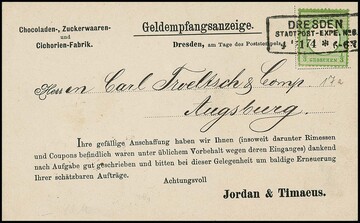 Chocoladen-, Zuckerwaaren-
und
Cichorien-Fabrik.
Geldempfangsanzeige.
Dresden, am Tage des Poststempels.
DRESDEN
STADTPOST-EXPE. No 8.
74 * 6-6
Herren Carl Troeltsch & Comp.
Augsburg.
Ihre gefällige Anschaffung haben wir Ihnen (insoweit darunter Rimessen
und Coupons befindlich waren unter üblichem Vorbehalt wegen deren Einganges) dankend
nach Aufgabe gut geschrieben und bitten bei dieser Gelegenheit um baldige Erneuerung
Ihrer schätzbaren Aufträge.
Achtungsvoll
Jordan & Timaeus.